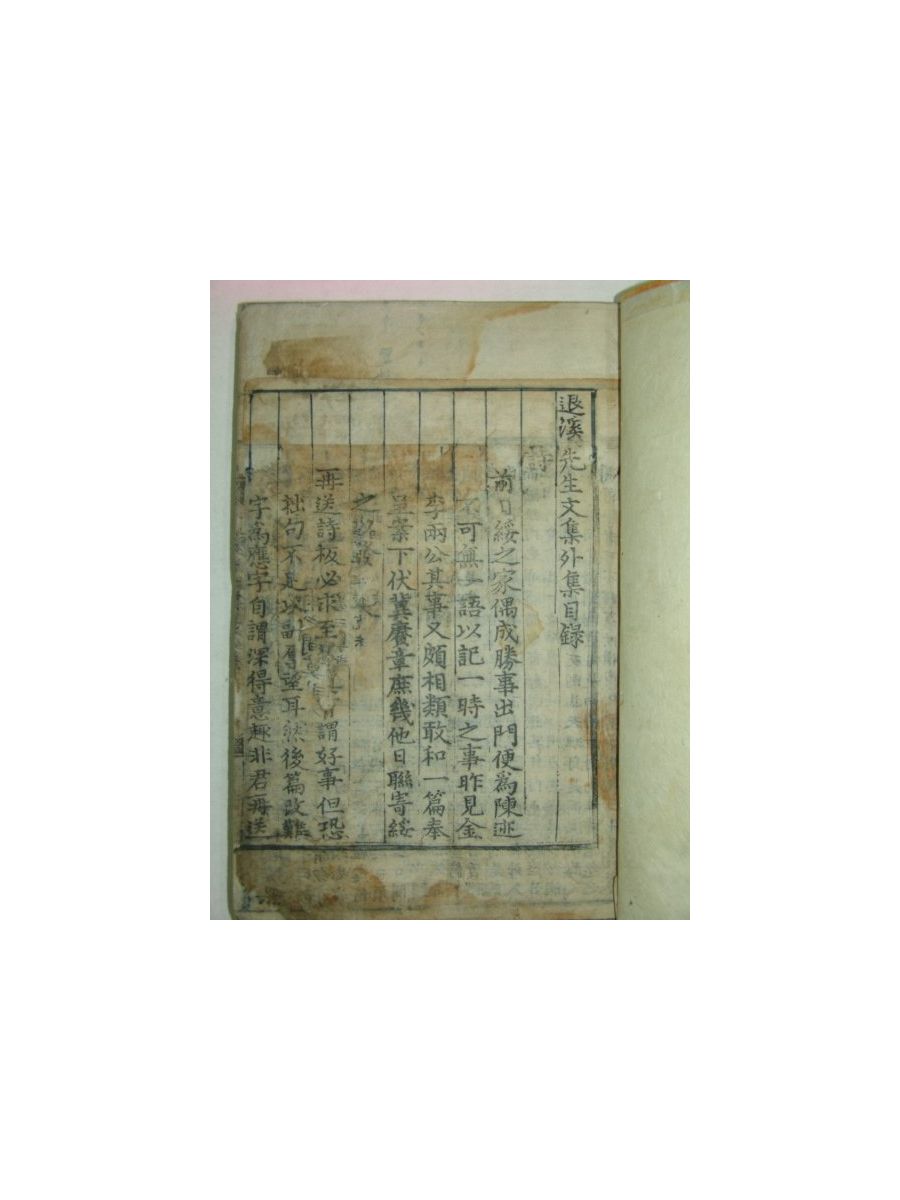 退溪先生文集外集目録
詩
前日綏之家偶成勝事出門便爲陳迹
不可無一語以記一時之事昨見金
李兩公其事又頗相類敢和一篇奉
呈案下伏冀賡章庶幾他日聯寄綏
之
再送詩板必求至 謂好事但恐
拙句不足以副厚望耳然後篇改難
字爲應字自謂深得意趣非君再送